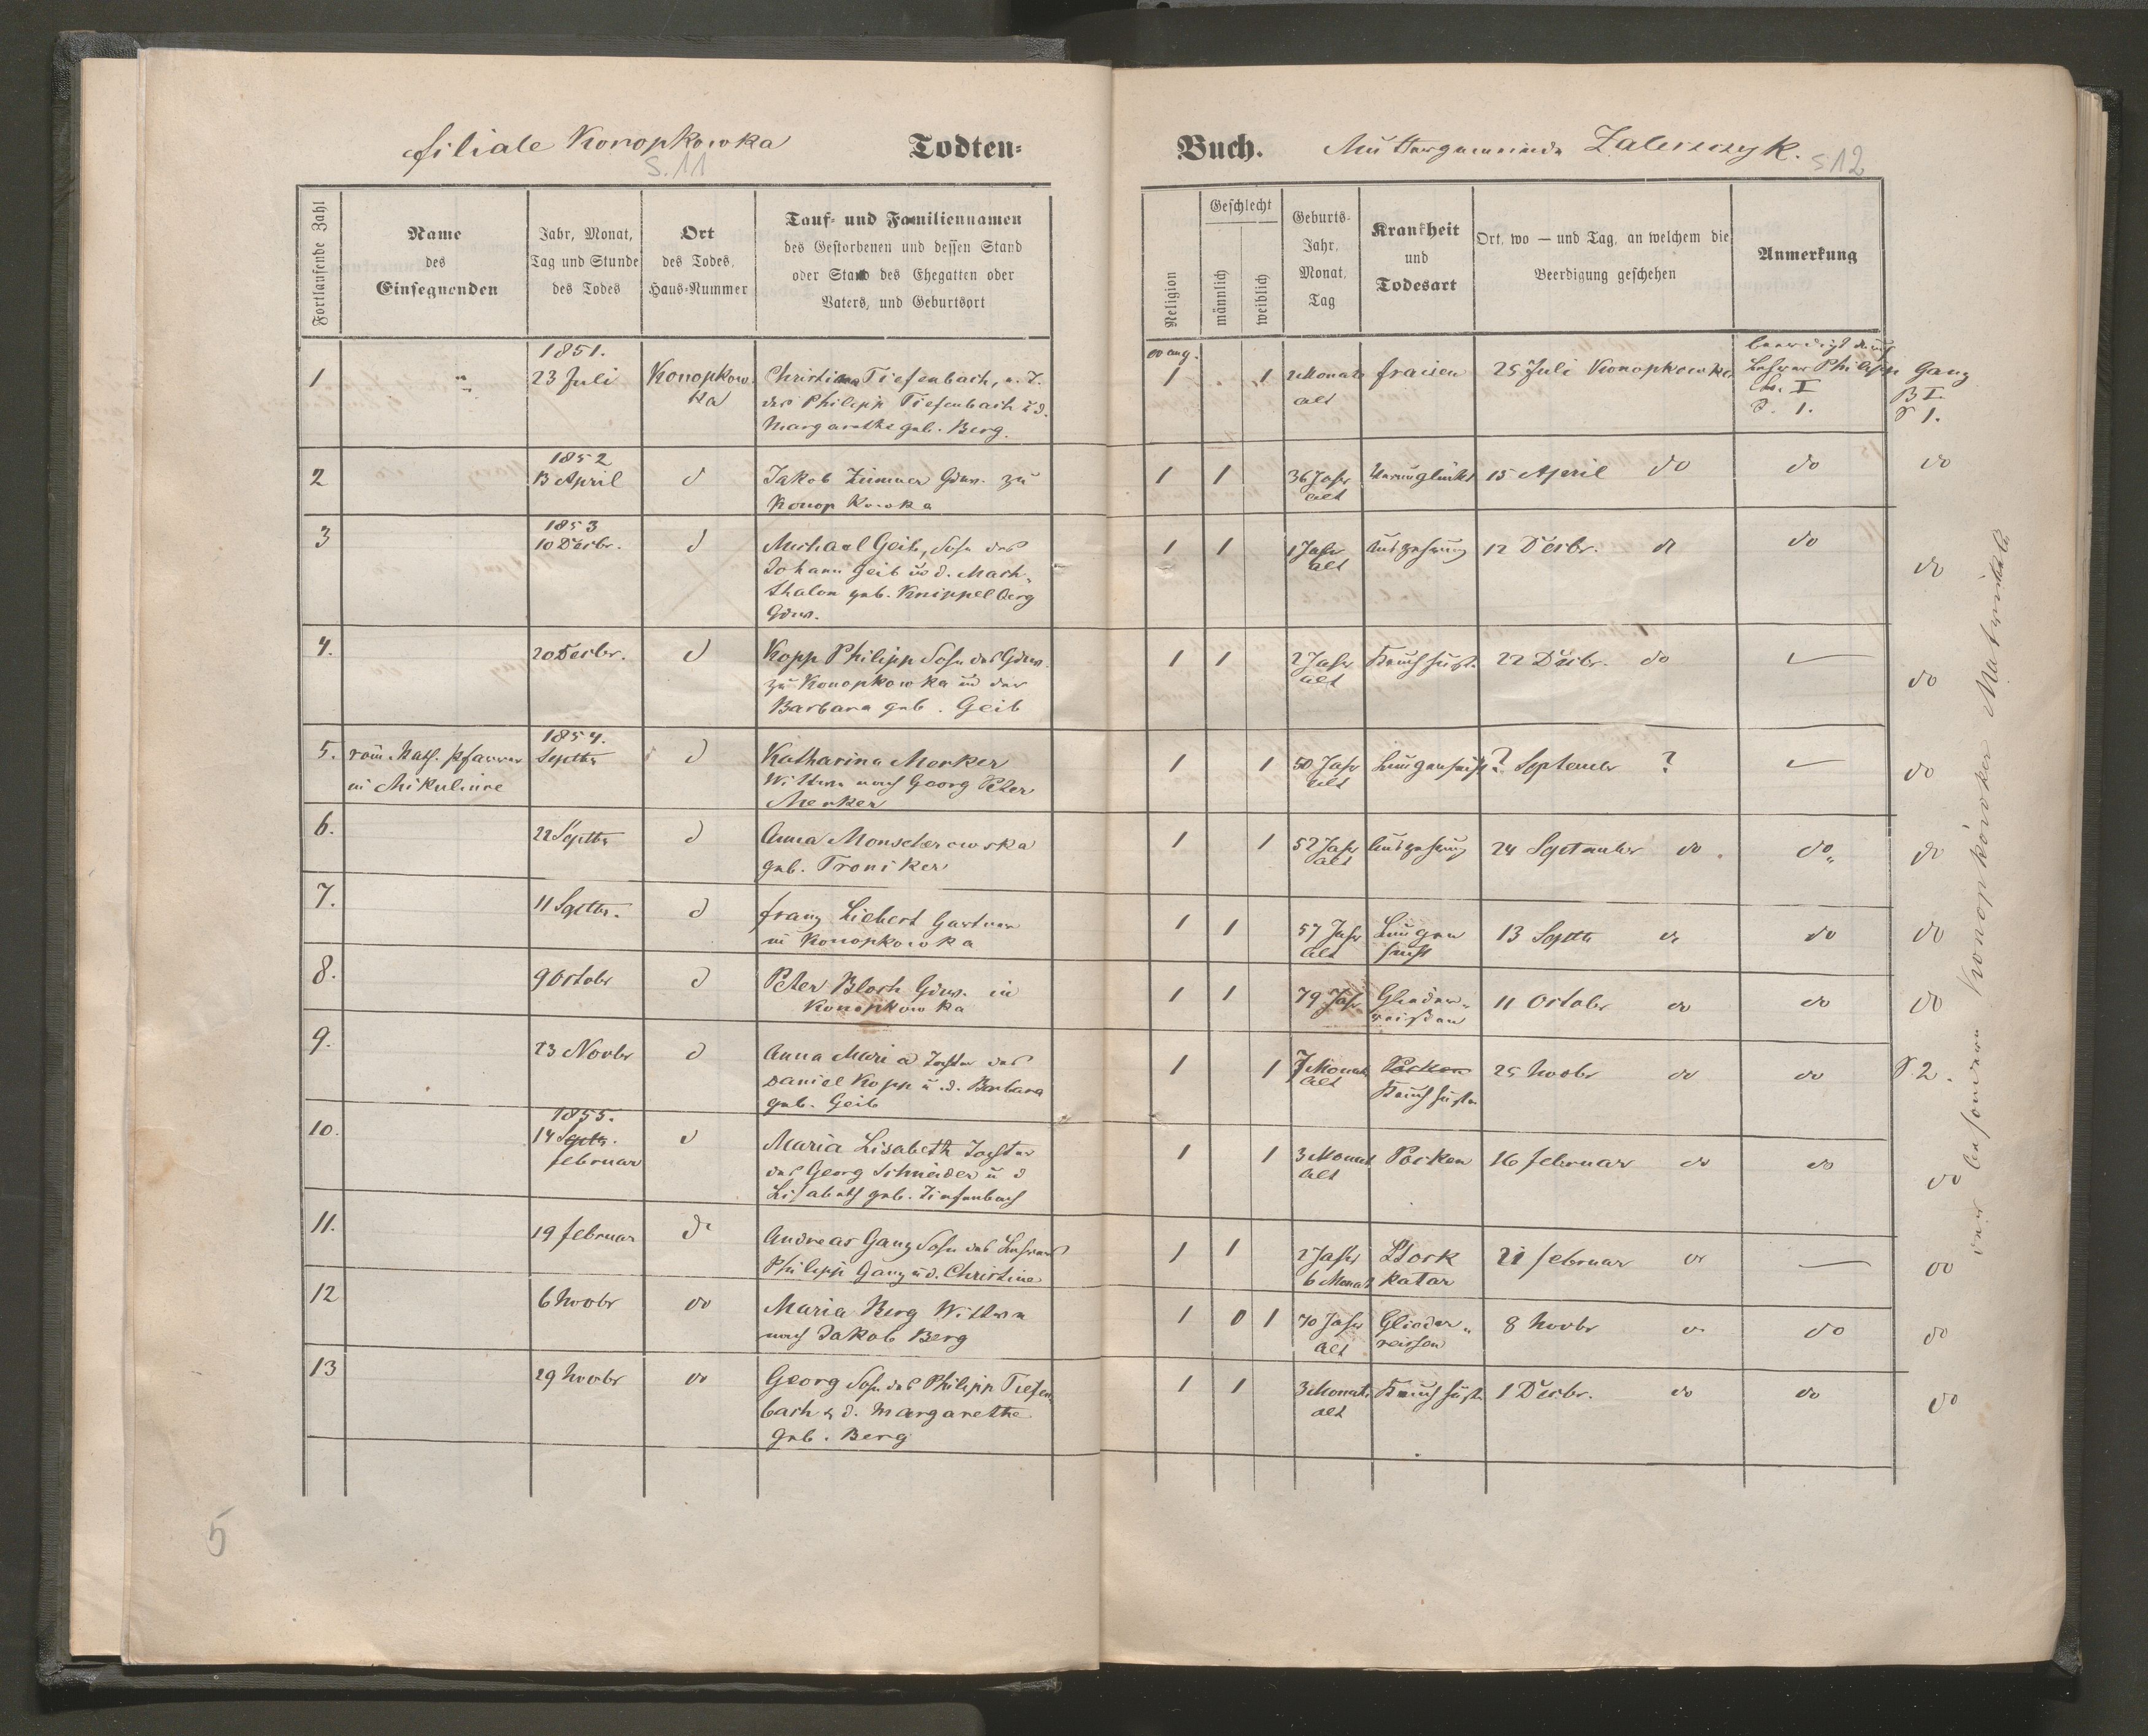 filiale Konopkowka
Todten-
S. 11
Fortlaufende Zahl
Name
des
Einsegnenden
Jahr, Monat,
Tag und Stunde
des Todes
Ort
des Todes,
Haus-Nummer
Tauf- und Familiennamen
des Gestorbenen und dessen Stand
oder Stand des Ehegatten oder
Vaters, und Geburtsort
1
1851.
23 Juli
Konopkow-
ka
Tiefenbach, e. T.
des Philipp Tiefenbach u d.
Margarethe geb. Berg.
2
1852
13 April
d
Jakob Zimmer Gdw. zu
Konopkowka
3
1853
10 Decbr.
d
Michael Geib, Sohn des
Johann Geib u d. Mach-
thalon geb. Knippelberg
Gdw.
4.
20 Decbr.
d
Kopp Philipp Sohn des Gdw.
zu Konopkowka u der
Barbara geb. Geib
5.
röm Kath. Pfarrer
in Mikulince
1854.
Septbr
d
Katharina Merker
Wittwe nach Georg Peter
Merker
6.
22 Septbr
d
Anna Monscherowska
geb. Troniker
7.
11 Septbr.
d
Franz Liebert Gartner
in Konopkowka
8.
9 Octobr
d
Peter Bloch Gdw. in
Konopkowka
9.
23 Novbr
d
Anna Maria Tochter des
Daniel Kopp u. d. Barbara
geb. Geib
10.
1855.
14 Septbr.
februar
d
Maria Lisabeth Tochter
des Georg Schneider u d
Lisabeth geb. Tiefenbach
11.
19 februar
do
Andreas Ganz Sohn des Lehrers
Philipp Ganz u d. Christine
12
6 Novbr
do
Maria Berg Wittwe
nach Jakob Berg
13
29 Novbr
do
Georg Sohn des Philipp Tiefen-
bach u d. Margarethe
geb. Berg
5
Buch.
Muttergemeinde Zaleszczyk.
S 12
Religion
Geschlecht
männlich
weiblich
Geburts-
Jahr,
Monat,
Tag
Krankheit
und
Todesart
Ort, wo — und Tag, an welchem die
Beerdigung geschehen
Anmerkung
evang.
1
1
2 Monate
alt
fraisen
25 Juli Konopkowka
beerdigt durch
Lehrer Philipp Ganz
B I.
S 1.
1
1
36 Jahr
alt
Verunglückt
15 April
do
do
do
1
1
1 Jahr
alt
Auszehrung
12 Decbr.
do
do
do
1
1
2 Jahr
alt
Keuchhust.
22 Decbr.
do
do
1
1
50 Jahr
alt
? September
?
do
1
1
52 Jahr
alt
Auszehrung
24 September
do
do
do
1
1
57 Jahr
alt
Lungen
sucht
13 Septbr
do
do
do
1
1
79 Jahr
Glieder-
reißen
11 October
do
do
do
1
1
7 Monat
alt
Pocken
Keuchhusten
25 Novbr
do
do
S 2.
1
1
3 Monat
alt
Pocken
16 februar
do
do
do
1
1
2 Jahr
6 Monat
Stock
katar
21 februar
do
do
1
0
1
70 Jahr
alt
Glieder-
reissen
8 Novbr
do
do
do
1
1
3 Monate
alt
Keuchhusten
1 Decbr.
do
do
do
der besondern Konopkówker Matrikel